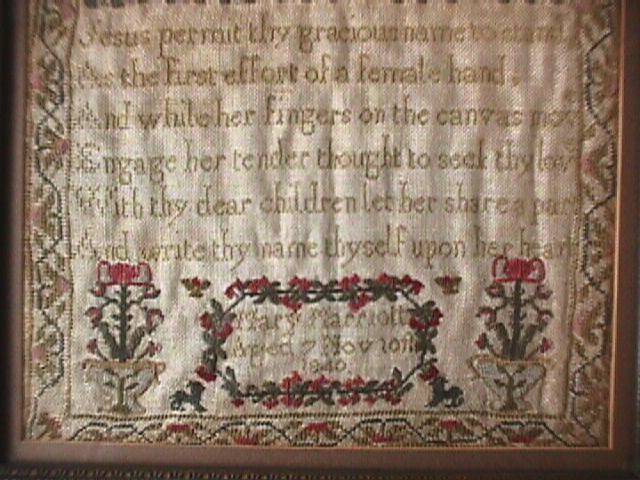 Jesus permit thy gracious name to stand
As the first effort of a female hand.
And while her fingers on the canvas move
Engage her tender thought to seek thy love
With thy dear children let her share a part
And write thy name thyself upon her heart
Mary Marriott
Aged 7 Nov 10th